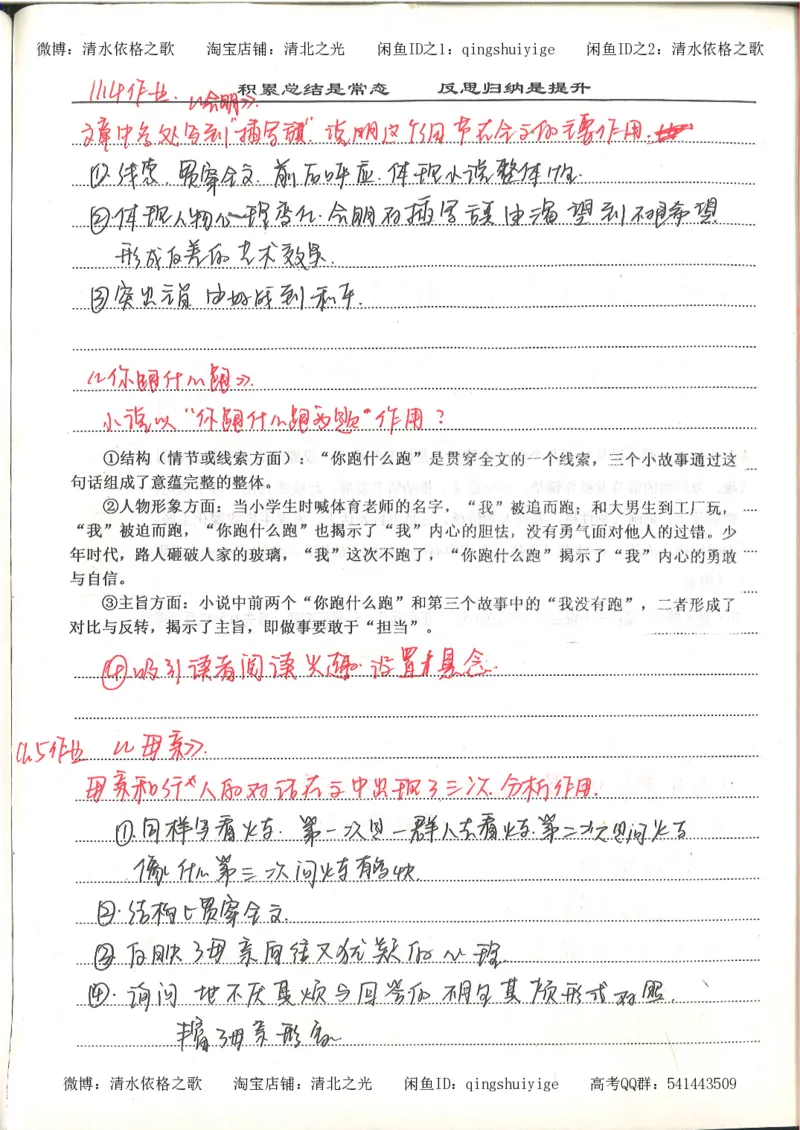 微博：清水依格之歌 淘宝店铺：清北之光 闲鱼ID之1：qingshuiyige 闲鱼ID之2：清水依格之歌
积累总结是常态 反思归纳是提升
11.4作业.《会明》.
文章中多处写到"插写旗".说明这个细节在全文的主要作用.
①线索.贯穿全文.前后呼应.体现小说整体性.
②体现人物心理变化.会明对插写旗由渴望到不愿希望
形成反差的艺术效果.
③突出主旨 由好战到和平.
《你跑什么跑》.
小说以"你跑什么跑为题"作用？
①结构（情节或线索方面）：“你跑什么跑”是贯穿全文的一个线索，三个小故事通过这
句话组成了意蕴完整的整体。
②人物形象方面：当小学生时喊体育老师的名字，“我”被追而跑；和大男生到工厂玩，
“我”被迫而跑，“你跑什么跑”也揭示了“我”内心的胆怯，没有勇气面对他人的过错。少
年时代，路人砸破人家的玻璃，“我”这次不跑了，“你跑什么跑”揭示了“我”内心的勇敢
与自信。
③主旨方面：小说中前两个“你跑什么跑”和第三个故事中的“我没有跑”，二者形成了
对比与反转，揭示了主旨，即做事要敢于“担当”。
④吸引读者阅读兴趣.设置悬念.
11.5作业 《母亲》.
母亲和行人的对话在文中出现了三次.分析作用.
①.同样写看火车.第一次见一群人去看火车.第二次见问火车
像什么第三次问火车有多快
②.结构上贯穿全文.
③反映了母亲向往又犹疑的心理.
④.询问地不厌其烦与回答的不胜其烦形成对照.
丰富了母亲形象
微博：清水依格之歌 淘宝店铺：清北之光 闲鱼ID：qingshuiyige 高考QQ群：541443509